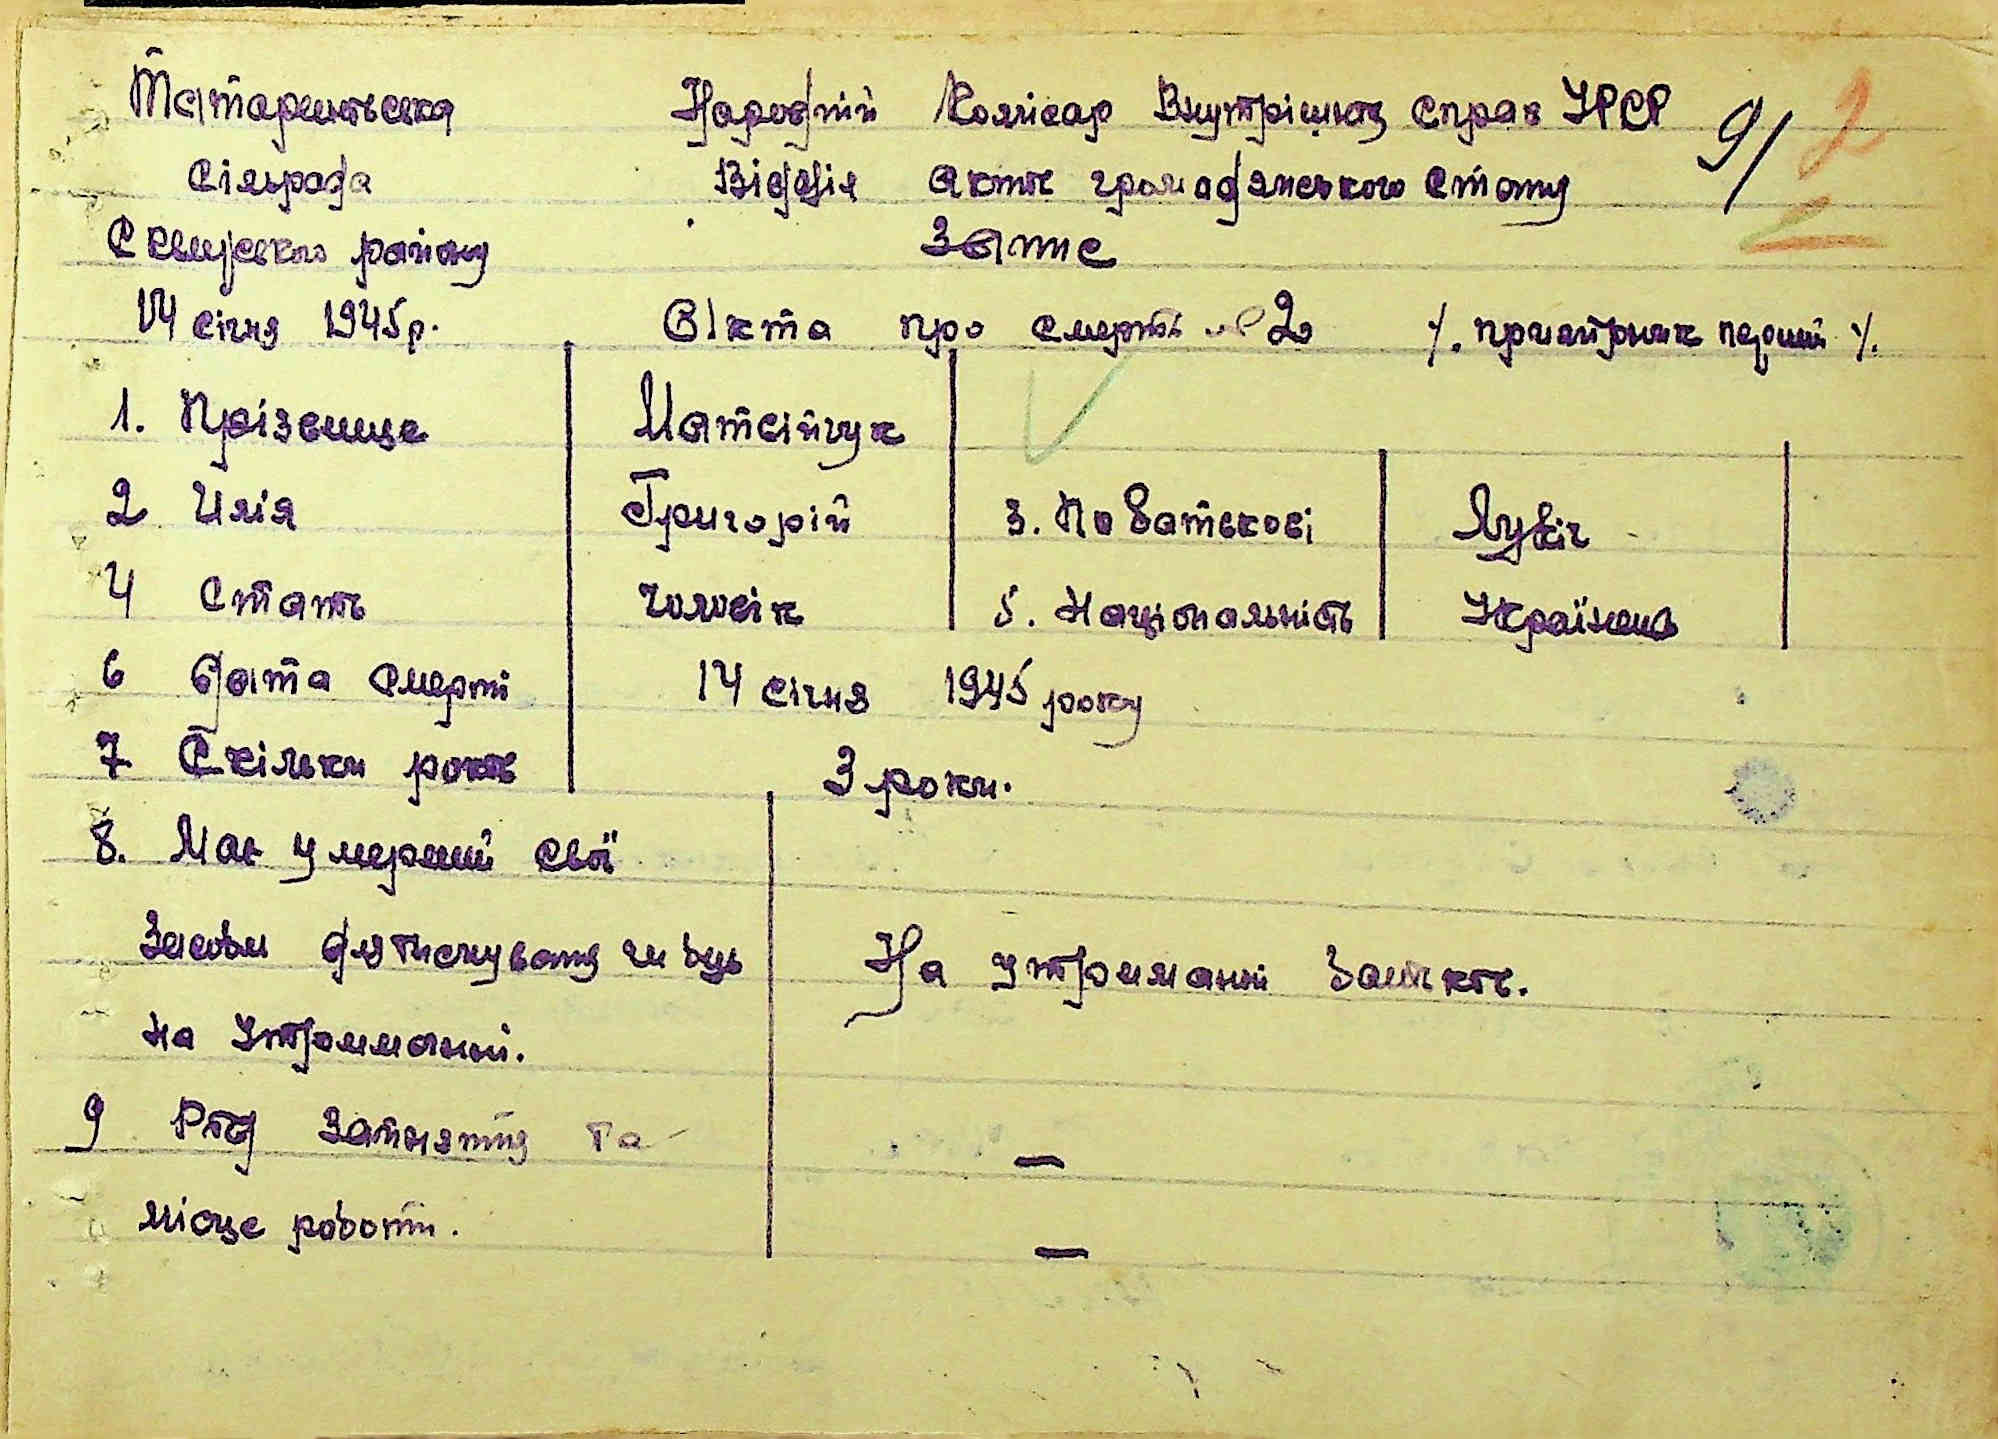 Татаринівська
сільрада
Сквирського району
14 січня 1945 р.
Народній Комісар Внутрішніх Справ УРСР
9/ 2
Відділ актів громадянського стану
Запис
Акта про смерть № 2 /. примірник перший /.
1. Прізвище Матвійчук
2 Имія Григорій 3. По батькові Лукіч
4 Стать чоловік 5. Національність Українець
6 дата смерті 14 січня 1945 року
7 Скільки років 3 роки.
8. Мав умерший свої
засоби для існування чи був
на утриманні. На утриманні батьків.
9 Рід заняття та —
місце роботи. —